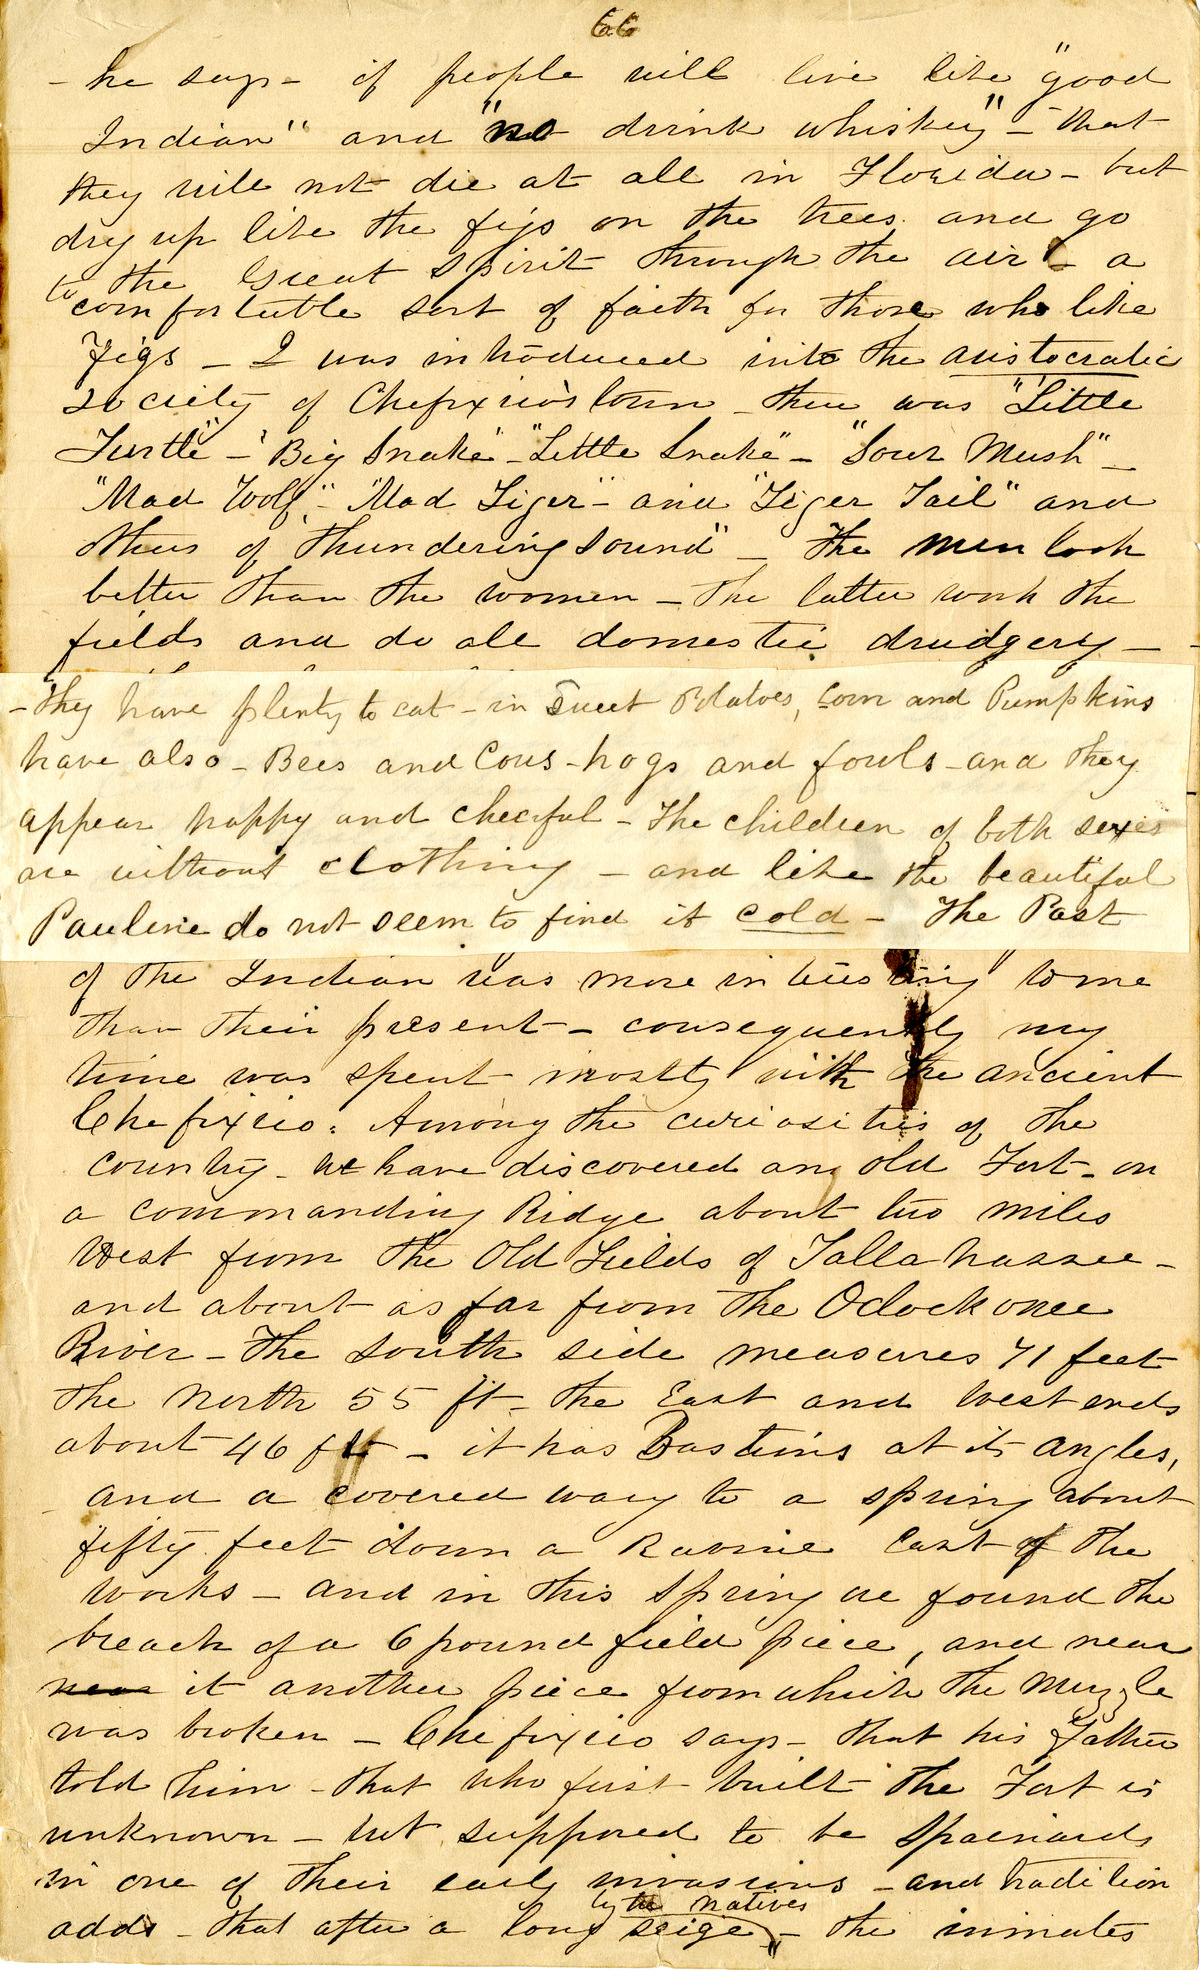 66
- he says - if people will live like "good
Indian" and "no drink whiskey" - that
they will not die at all in Florida - but
dry up like the figs on the trees and go
to the Great Spirit through the air - a
comfortable sort of faith for those who like
Figs - I was introduced into the aristocratic
society of Chefixico's town - there was "Little
Turtle" - "Big Snake" - "Little Snake" - "Sour Mush" -
"Mad Wolf" - "Mad Tiger" - and "Tiger Tail" and
others of thundering sound" - The men look
better than the women - The latter work the
fields and do all domestic drudgery -
- they have plenty to eat - in Sweet Potatoes, Corn and Pumpkins
have also - Bees and Cows - hogs and fowls - and they
appear happy and cheerful - The children of both sexes
are without clothing - and like the beautiful
Pauline do not seem to find it cold - The Past
of the Indian was more interesting to me
than their present - consequently my
time was spent mostly with the ancient
Chefixico. Among the curiosities of the
country - we have discovered an old Fort - on
a commanding Ridge about two miles
West from the Old Fields of Tallahassee -
and about as far from the Oclockonee
River - The South side measures 71 feet
the North 55 ft - the East and West ends
about 46 ft - it has Bastions at its angles,
and a covered way to a spring about
fifty feet down a Ravine East of the
works - and in this Spring we found the
breach of a 6 pound field piece, and near
near it another piece from which the Muzzle
was broken - Chefixico says - that his Father
told him - that who first built the Fort is
unknown - but supposed to be Spaniards
in one of their early invasions - and tradition
by the natives
adds - that after a long seige, - the inmates